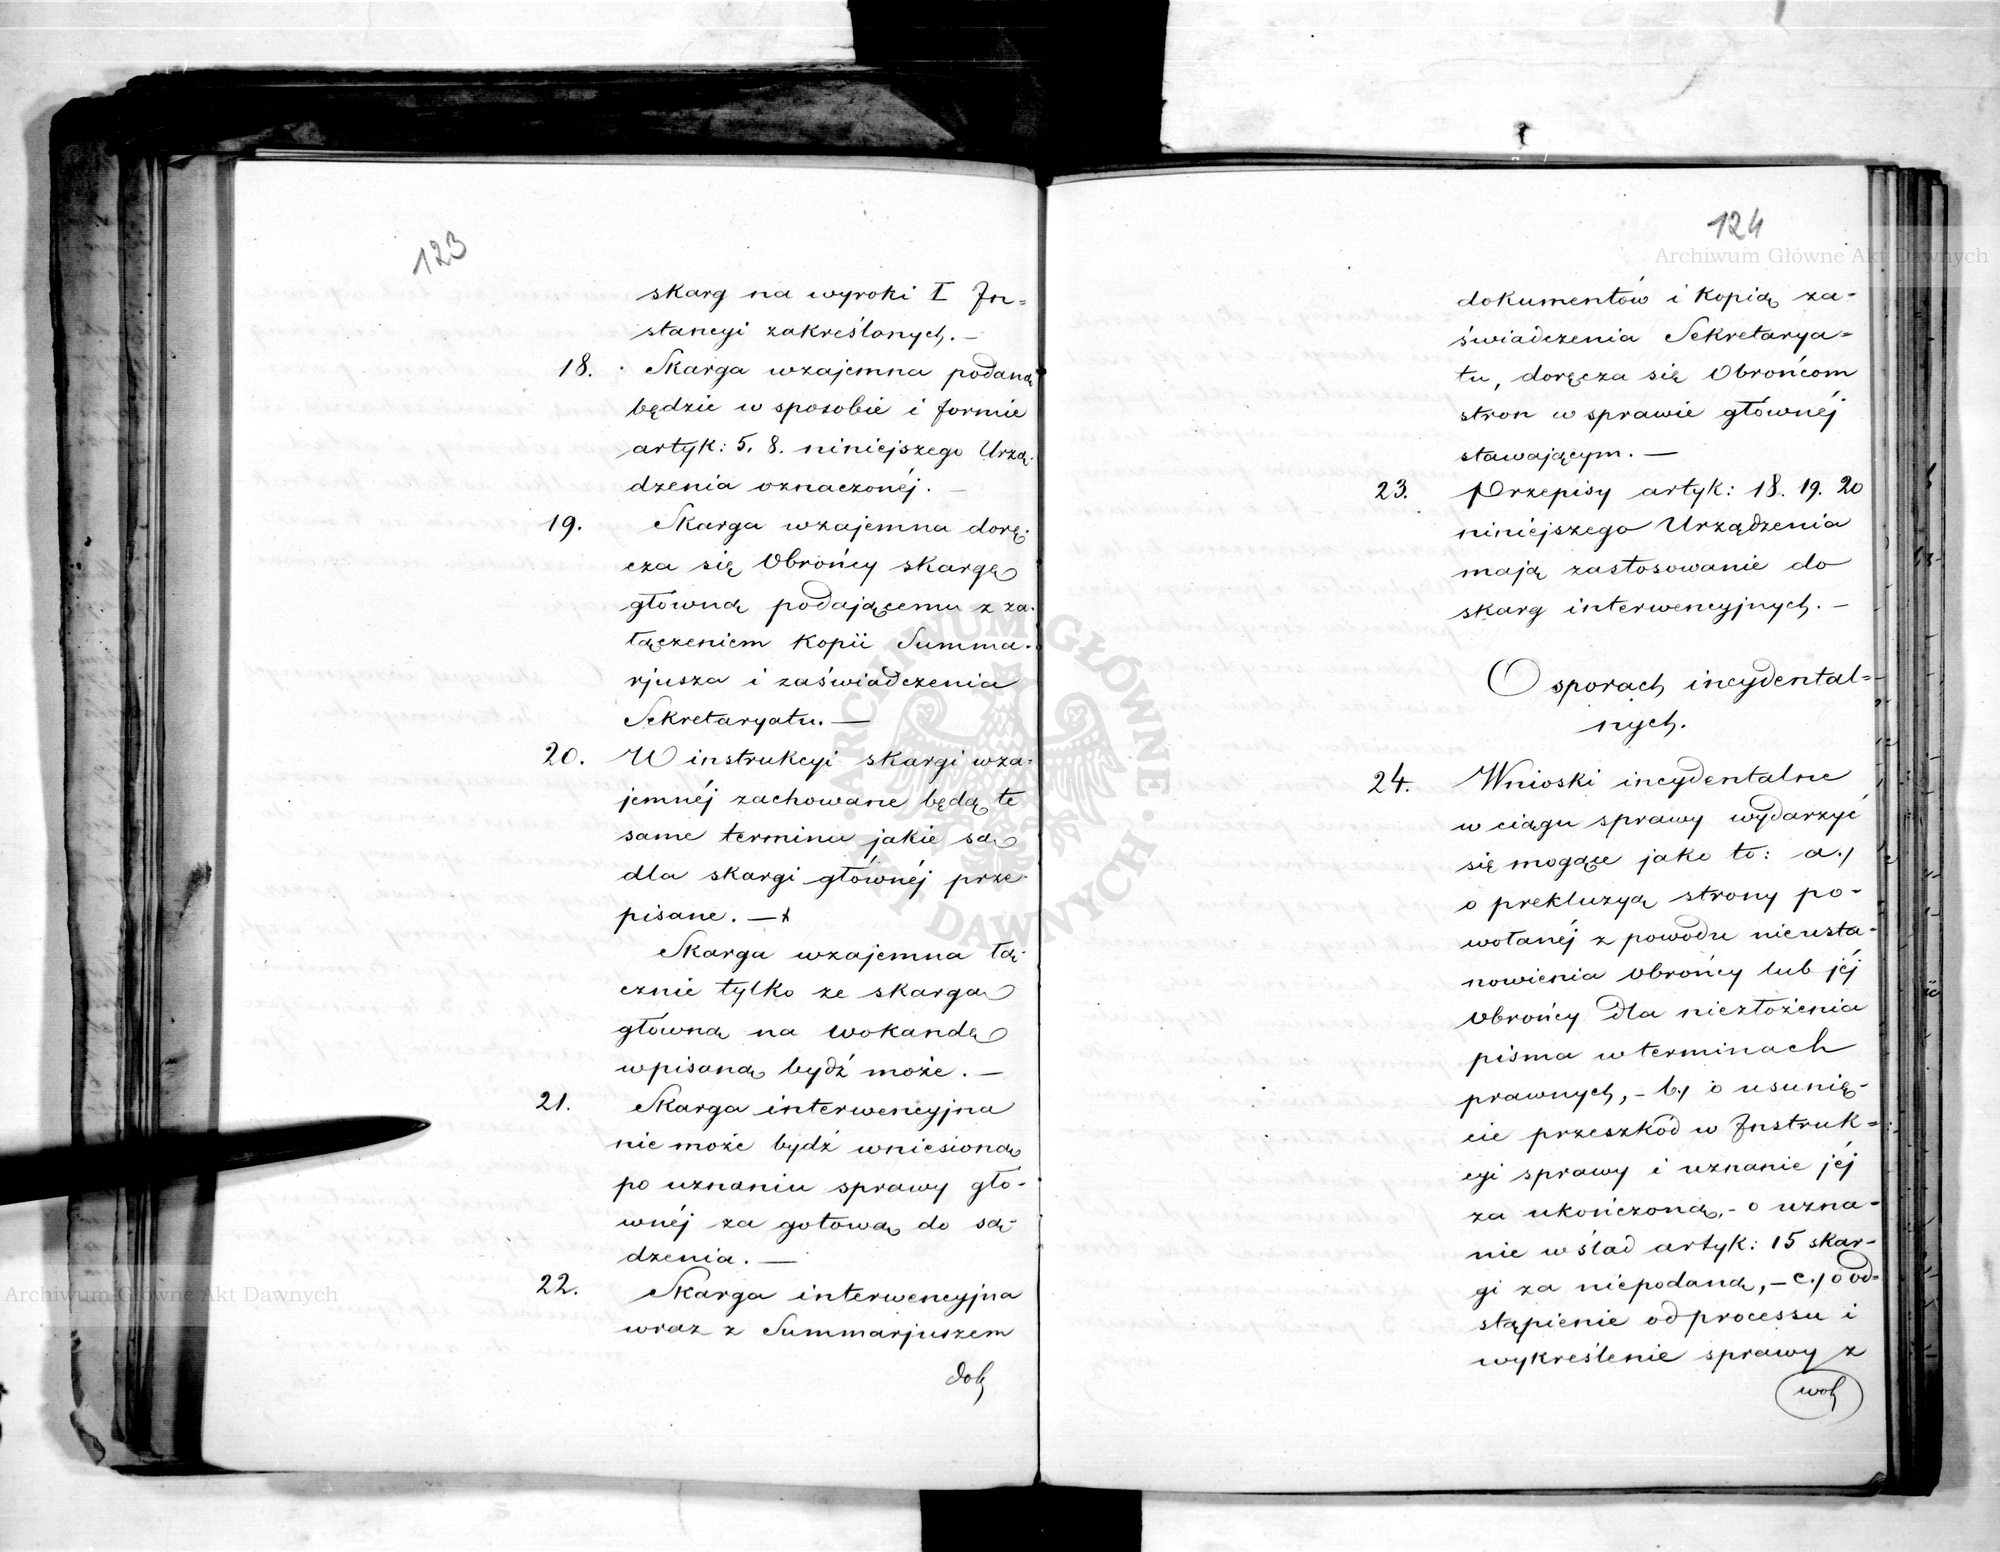 123
skarg na wyroki I In=
stancyi zakreślonych. —
18. Skarga wzajemna podaną
będzie w sposobie i formie
artyk: 5. 8. niniejszego Urzą-
dzenia oznaczonéj. —
19. Skarga wzajemna dorę-
cza się Obrońcy skargę
główną podającemu z za-
łączeniem kopii Summa-
rjusza i zaświadczenia
Sekretaryatu. —
20. W instrukcyi skargi wza-
jemnéj zachowane będą te
same terminu jakie są
dla skargi głównéj prze-
pisane. —
Skarga wzajemna łą-
cznie tylko ze skargą
główną na wokandę
wpisaną bydź może. —
21. Skarga interwencyjna
nie może bydź wniesioną
po uznaniu sprawy głó-
wnéj za gotową do są-
dzenia. —
22. Skarga interwencyjna
wraz z Summarjuszem
124
dokumentów i kopią za-
świadczenia Sekretarya=
tu, doręcza się Obrońcom
stron w sprawie głównéj
stawającym. —
23. Przepisy artyk: 18. 19. 20
niniejszego Urządzenia
mają zastosowanie do
skarg interwencyjnych. —
O sporach incydental=
nych.
24. Wnioski incydentalne
w ciągu sprawy wydarzyć
się mogące jako to: a./
o prekluzyą strony po-
wołanéj z powodu nieusta-
nowienia Obrońcy lub jéj
Obrońcy dla niezłożenia
pisma w terminach
prawnych, - b./ o usunię-
cie przeszkód w Instruk=
cyi sprawy i uznanie jéj
za ukończoną, - o uzna-
nie w ślad artyk: 15 skar-
gi za niepodaną, - c./ o od=
stąpienie od processu i
wykreślenie sprawy z
Archiwum Główne Akt Dawnych
Archiwum Główne Akt Dawnych
ARCHIWUM GŁÓWNE AKT DAWNYCH